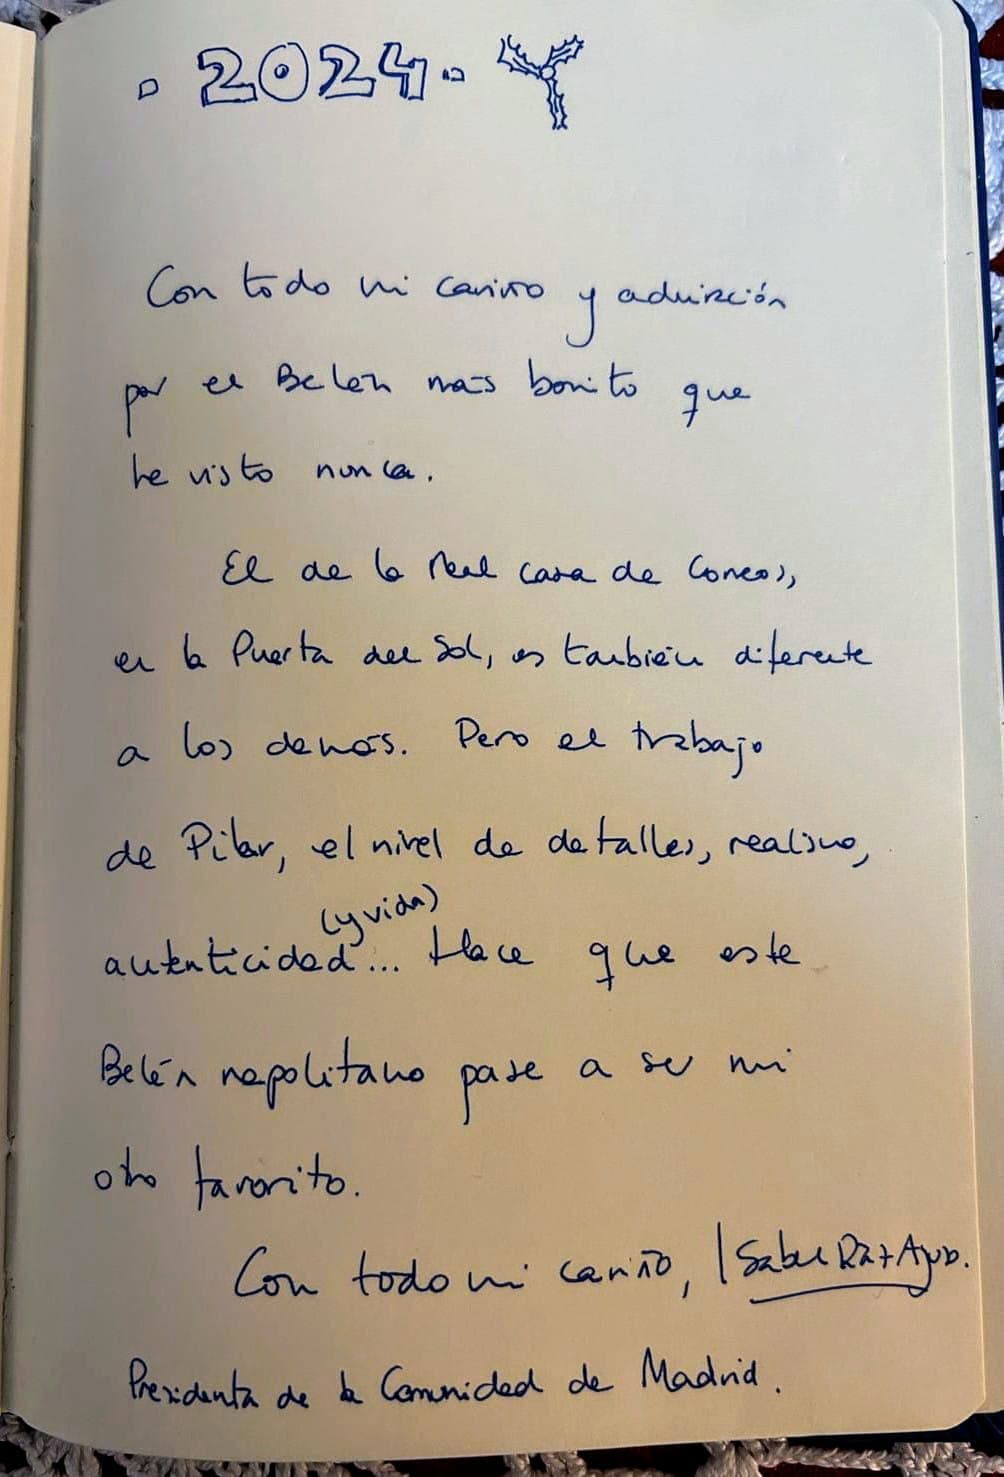 · 2024 ·
Con todo mi cariño y admiración
por el Belén más bonito que
he visto nunca.
El de la Real casa de Correos,
en la Puerta del Sol, es también diferente
a los demás. Pero el trabajo
de Pilar, el nivel de detalles, realismo,
(y vida)
autenticidad... Hace que este
Belén napolitano pase a ser mi
otro favorito.
Con todo mi cariño, Isabel Díaz Ayuso.
Presidenta de la Comunidad de Madrid.